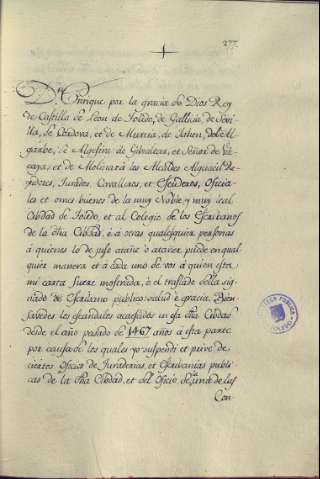 277
Dn. Enrique por la gracia de Dios Rey
de Castilla de Leon de Toledo, de Gallicia, de Sevi
lla, de Cordova, et de Murcia, de Jahen, del Al
garbe, de Algesira de Gibraltar, et Señor de Viz
caya, et de Molina: à los Alcaldes Alguacil Re
gidores, Jurados, Cavalleros, et Escuderos, Oficia
les et omes buenos de la muy Noble y muy leal
Ciudad de Toledo, et al Colegio de los Escribanos
de la dha Ciudad, è à otras qualesquier personas
à quienes lo de yuso atañe ò atañer puede en qual
quier manera et à cada uno de vos à quien esta
mi carta fuere mostrada, ò el traslado della sig
nado de Escribano publico salud è gracia. Bien
sabedes los escandalos acaescidos en esa dha Ciudad
desde el año pasado de 1467 años à esta parte
por causa de los quales yo suspendi et privè de
ciertos Oficios de Juraderias, et Escribanias publi
cas de la dha Ciudad, et del Oficio de uno de los
Con